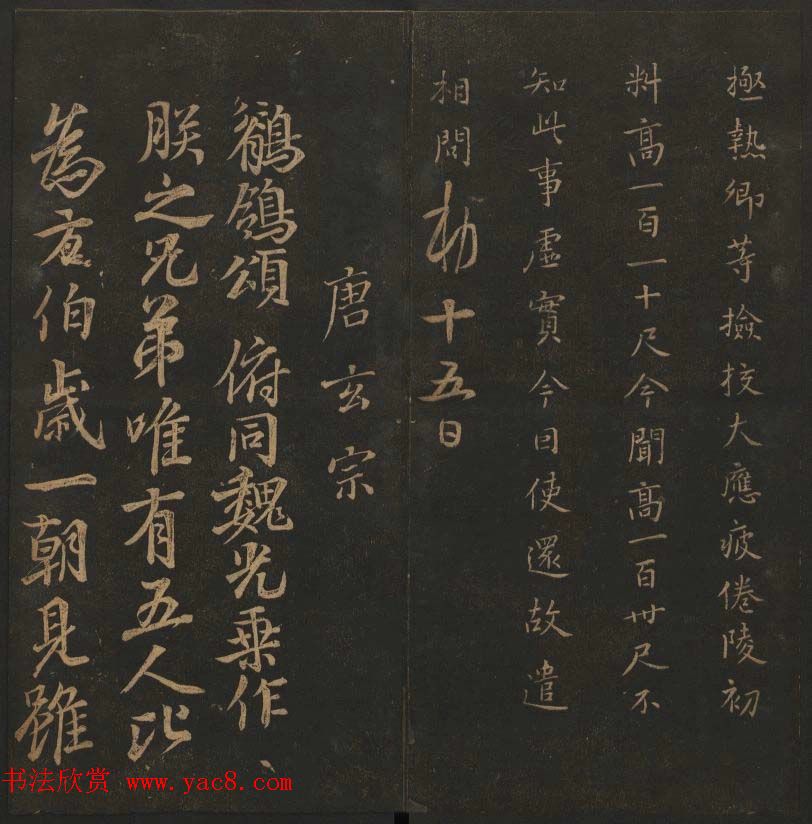 極熱卿等撿挍大應疲倦陵初
料高一百一十尺今聞高一百卅尺不
知此事虛實今因使還故遣
相問勅十五日
唐玄宗
鶺鴒頌 俯同魏光乘作
朕之兄弟唯有五人比
為方伯歲一朝見雖
书法欣赏 www.yac8.com